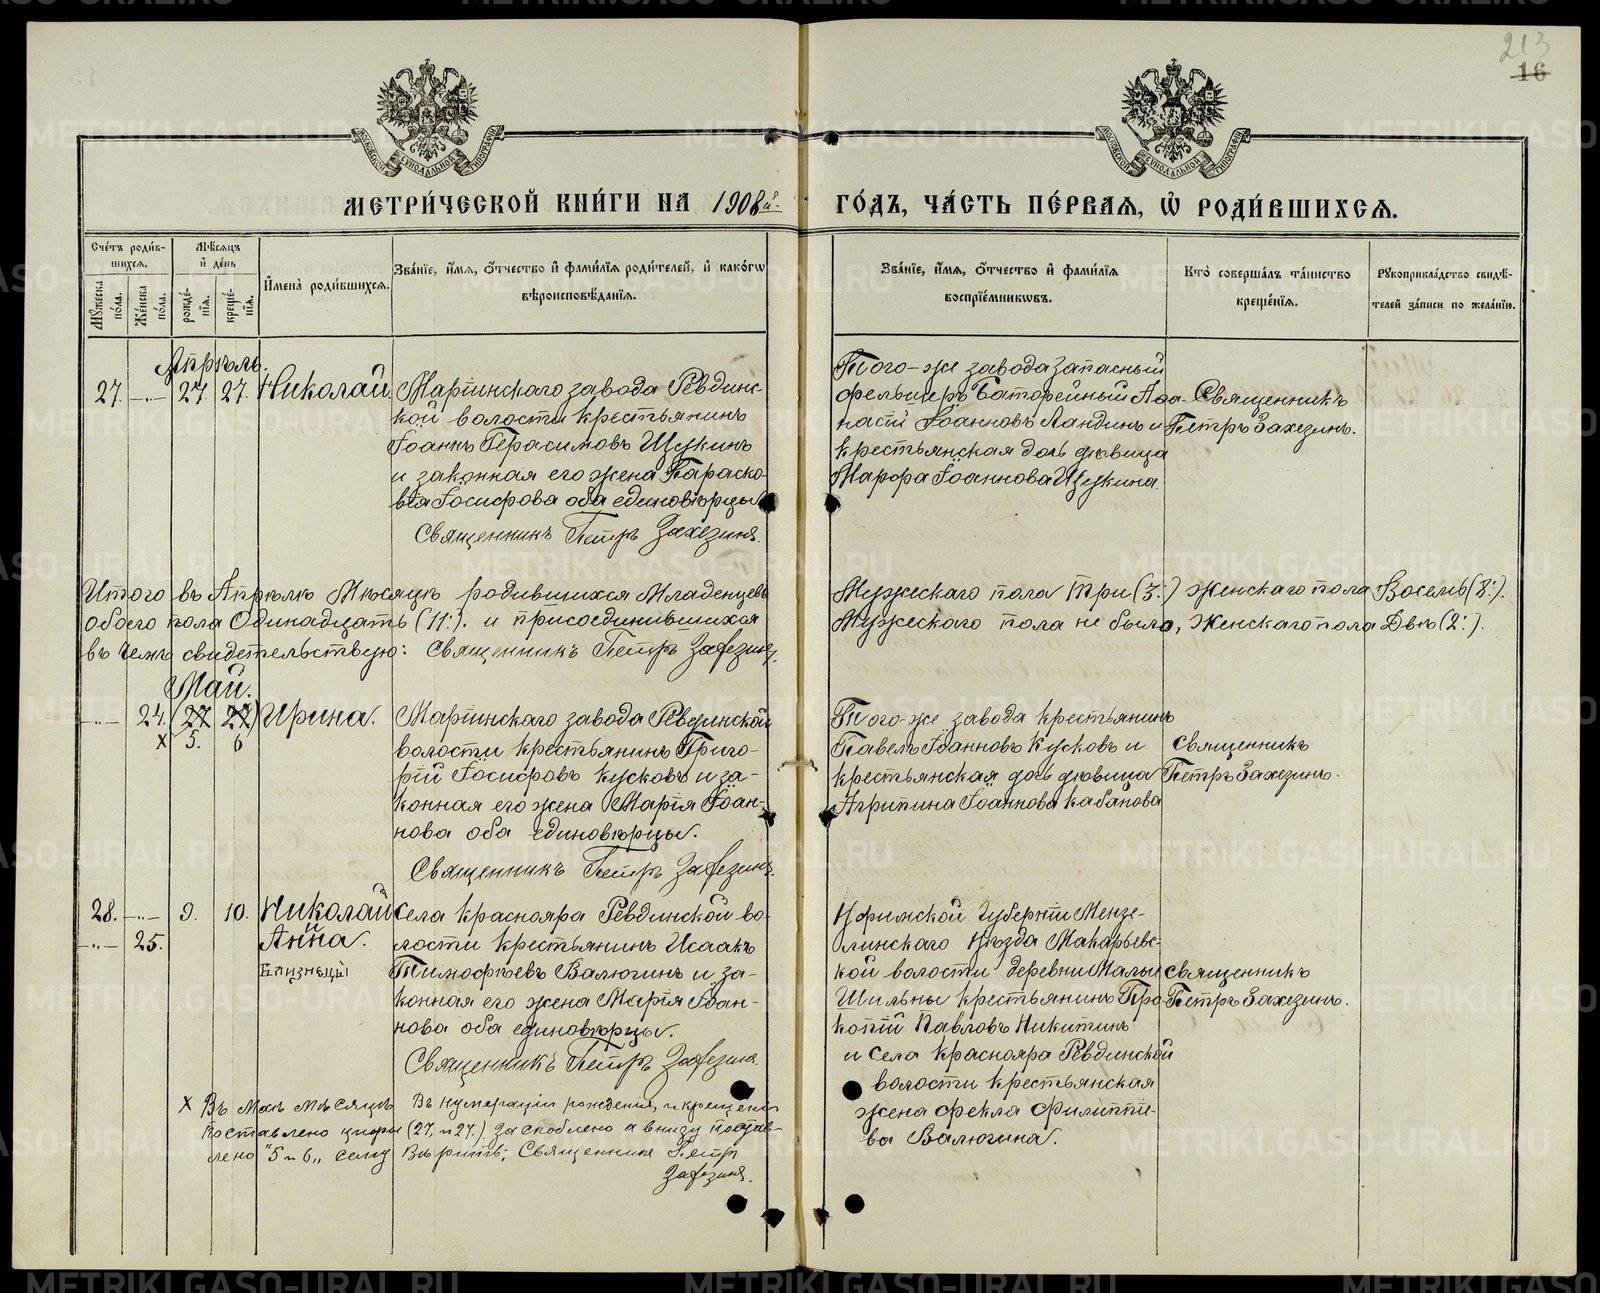 213
16
МЕТРИ́ЧЕСКОЙ КНИ́ГИ НА 1908й.
ГО́ДЪ, ЧА́СТЬ ПЕ́РВАѦ, Ѡ҆ РОДИ́ВШИХСѦ.
Сче́тъ роди́в-
шихсѧ.
Мѣ́сѧцъ
и҆ де́нь
Мꙋ́жеска по́ла.
Же́нска по́ла.
рожде́-
нїѧ.
креще́-
нїѧ.
И҆мена̀ роди́вшихсѧ.
Зва́нїе, и҆́мѧ, ѻ҆́тчество и҆ фами́лїѧ роди́телей, и҆ како́гѡ
вѣроисповѣ́данїѧ.
Зва́нїе, и҆́мѧ, ѻ҆́тчество и҆ фами́лїѧ
воспрїе́мникѡвъ.
Кто̀ соверша́лъ та́инство
креще́нїѧ.
Рꙋкоприкла́дство свидѣ́-
телей за́писи по жела́нїю.
Апрѣль.
27. -..- 27. 27. Николай
Маріинскаго завода Ревдинс-
кой волости крестьянинъ
Іоаннъ Герасимовъ Щукинъ
и законная его жена Параско-
вія Іосифова оба единовѣрцы
Священникъ Петръ Захезинъ.
Того-же завода запасный
фельшеръ Баторейный Афа-
насій Іоанновъ Ландинъ и
крестьянская дочь дѣвица
Марфа Іоаннова Щукина.
Священникъ
Петръ Захезинъ.
Итого въ Апрѣлѣ Мѣсяцѣ родившихся Младенцевъ
обоего пола Одинадцать (11:). и присоединившихся
въ чемъ свидетельствую: Священникъ Петръ Захезинъ.
Мужескаго пола три (3:) Женскаго пола Восемь (8:).
Мужескаго пола не было, Женскаго пола Двѣ (2:).
Май.
-..- 24. (27 27) Ирина.
х 5. 6
Маріинскаго завода Ревдинской
волости крестьянинъ Григо-
рій Іосифовъ Кусковъ и за-
конная его жена Марія Іоан-
нова оба единовѣрцы.
Священникъ Петръ Захезинъ.
Того-же завода крестьянинъ
Павелъ Іоанновъ Кусковъ и
крестьянская дочь дѣвица
Агрипина Іоаннова Кабанова
Священникъ
Петръ Захезинъ.
28. -..- 9. 10. Николай
и
-..- 25. Анна.
Близнецы
Села Краснояра Ревдинской во-
лости крестьянинъ Исаакъ
Тимофѣевъ Валюгинъ и за-
конная его жена Марія Іоан-
нова оба единовѣрцы.
Священникъ Петръ Захезинъ.
Уфимской Губерніи Мензе-
линскаго Уѣзда Макарьевс-
кой волости деревни Малы
Шильны крестьянинъ Про-
копій Павловъ Никитинъ
и Села Краснояра Ревдинской
волости крестьянская
жена Фекла Филиппіе-
ва Валюгина.
Священникъ
Петръ Захезинъ.
х Въ Маѣ мѣсяцѣ Въ нумераціи рожденія, и крещенія
поставлено цифры (27, и 27.) заскоблено а внизу постав-
лено "5 и 6„ сему вѣрить; Священникъ Петръ
Захезинъ.
METRIKI.GASO-URAL.RU